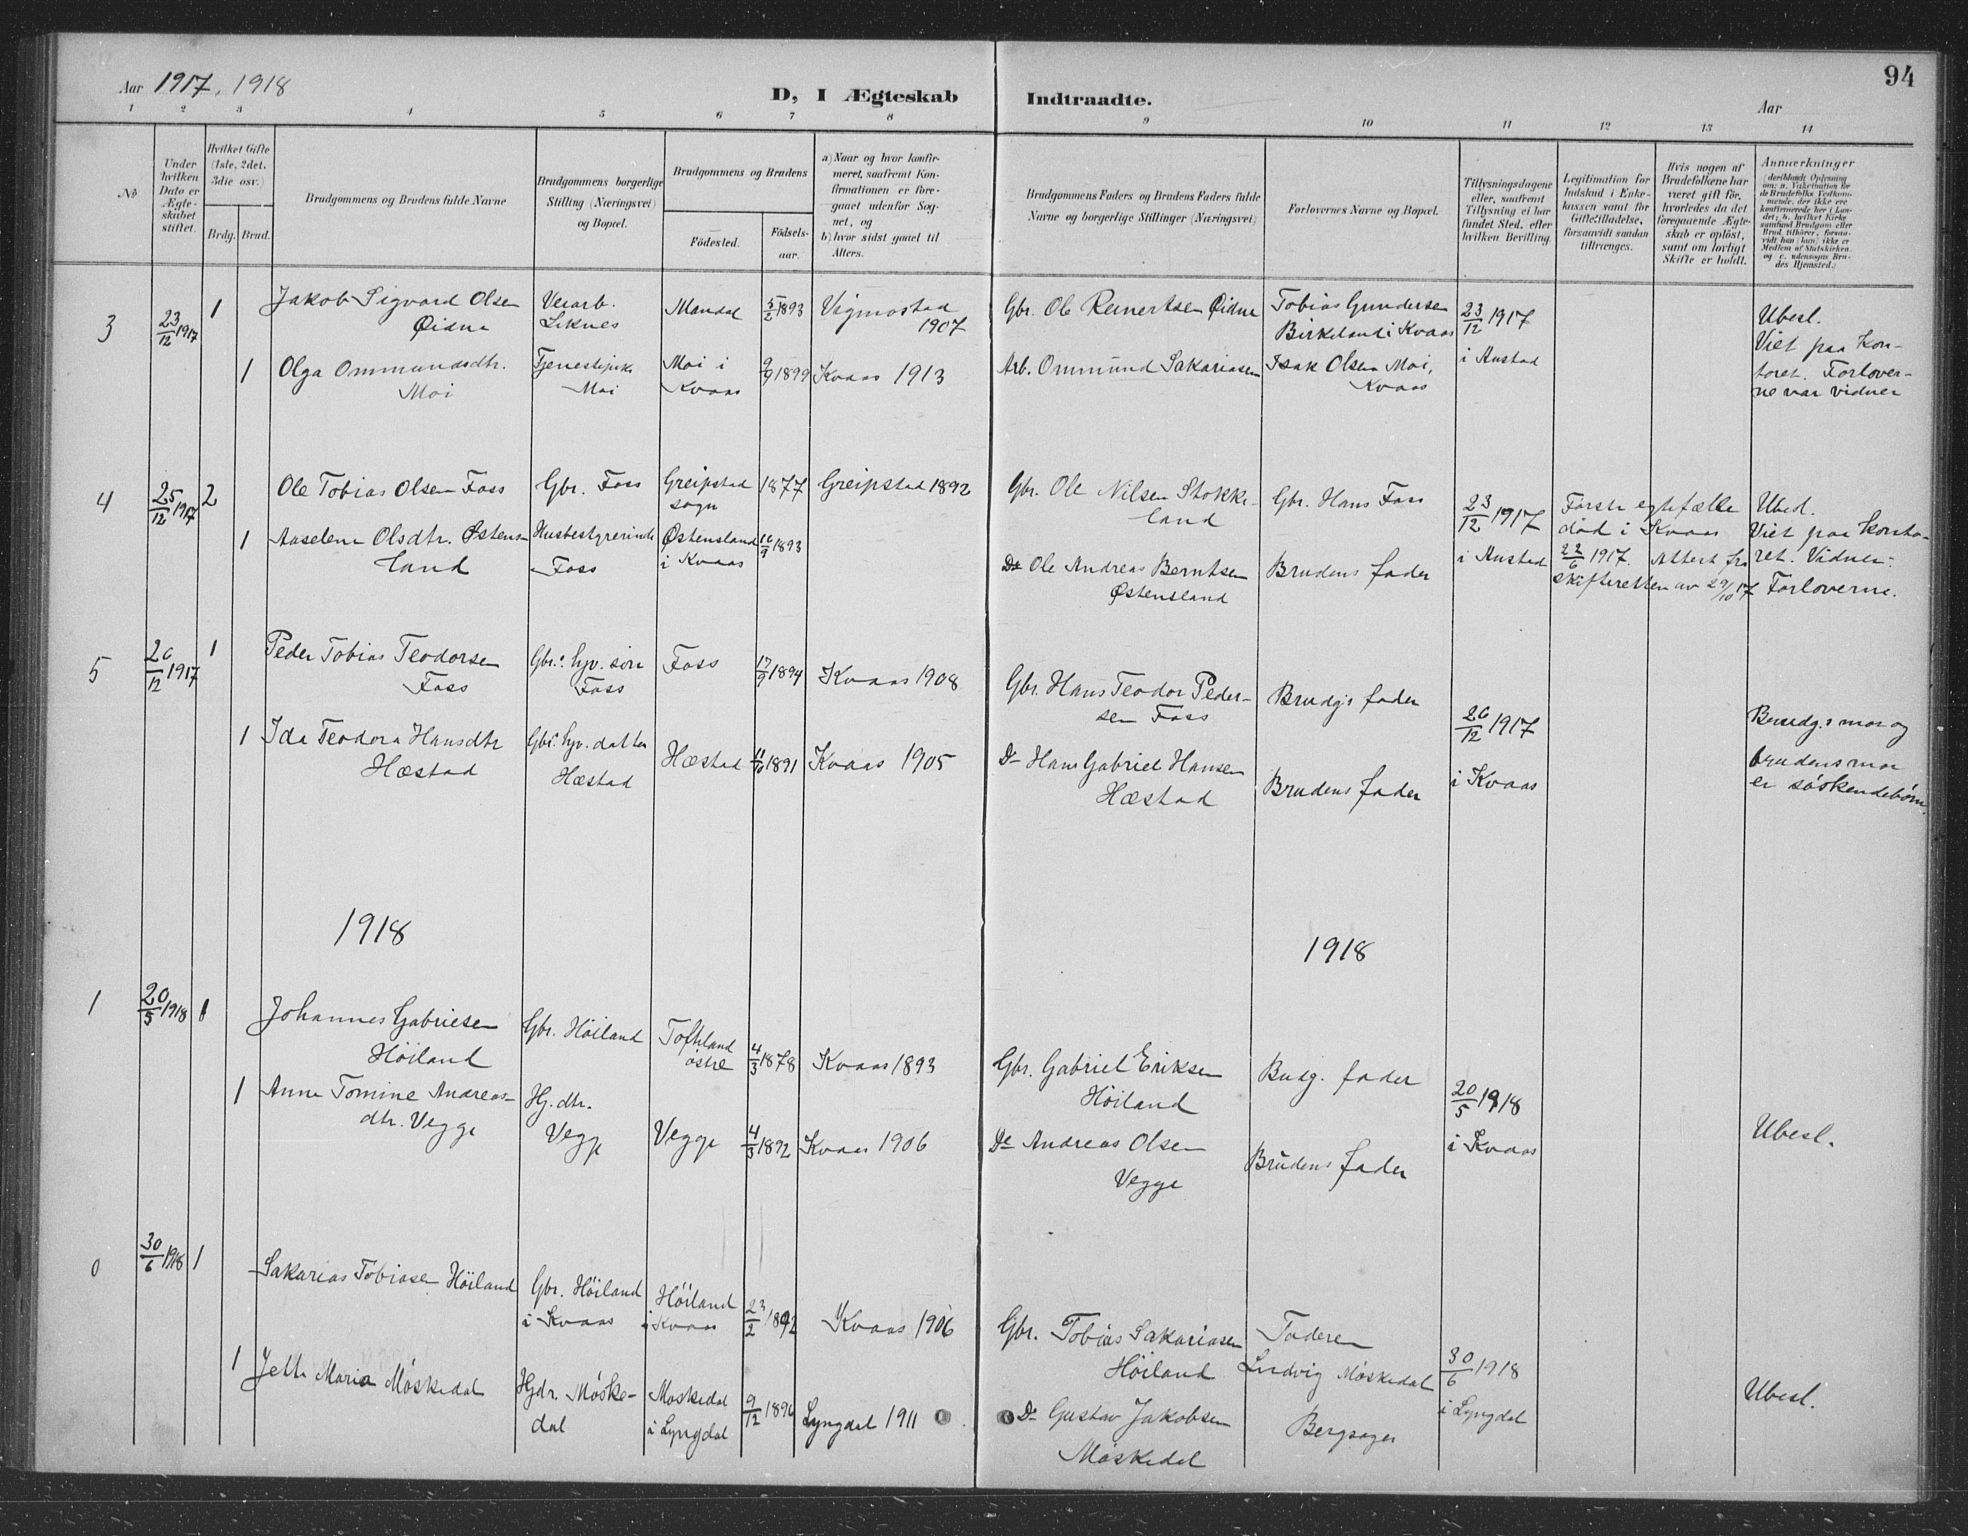 Aar 1917, 1918
D, I Ægteskab
Indtraadte.
Aar
94
1 2 3 4 5 6 7 8 9 10 11 12 13 14
No
Under hvilken Dato er Ægteskabet stiftet.
Hvilket Gifte (1ste, 2det, 3die osv.)
Brdg. Brud.
Brudgommens og Brudens fulde Navne
Brudgommens borgerlige Stilling (Næringsvei) og Bopæl.
Brudgommens og Brudens
Fødested.
Fødsels-aar.
a) Naar og hvor konfirmeret, saafremt Konfirmationen er foregaaet udenfor Sognet, og
b) hvor sidst gaaet til Alters.
Brudgommens Faders og Brudens Faders fulde Navne og borgerlige Stillinger (Næringsvei)
Forlovernes Navne og Bopæl.
Tillysningsdagene eller, saafremt Tillysning ei har fundet Sted, efter hvilken Bevilling.
Legitimation for Indskud i Enkekassen samt for Giftetilladelse, forsaavidt saadan tiltrænges.
Hvis nogen af Brudefolkene har været gift før, hvorledes da det foregaaende Ægteskab er opløst, samt om lovligt Skifte er holdt.
Anmærkninger
3 23/12 1917 1 Jakob Sigvard Olsen Øidna
Veiarb. Leknes
Mandal 5/2 1893
Vigmostad 1907
Gbr. Ole Reinertsen Øidna
Tobias Gundersen Birkeland i Kvaas
23/12 1917 i Austad
Ubesl. Viet paa kontoret. Forloverne var vidner
1 Olga Ommundsdtr. Moi
Tjenestepike Moi
Moi i Kvaas
9/9 1899
Kvaas 1913
Arb. Ommund Sakariasen
Isak Olsen Moi, Kvaas
4 25/12 1917 2 Ole Tobias Olsen Foss
Gbr. Foss
Greipstad sogn
1877
Greipstad 1892
Gbr. Ole Nilsen Stokkeland
Gbr. Hans Foss
23/12 1917 i Austad
Første egtefælle død i Kvaas 22/6 1917. Attest fra skifteretten av 29/10 17
Ubesl. Viet paa kontoret. Vidner: Forloverne.
1 Aaselene Olsdtr. Østensland
Husbestyrerinde Foss
Østensland i Kvaas
16/9 1893
Do Ole Andreas Berntsen Østensland
Brudens fader
5 26/12 1917 1 Peder Tobias Teodorsen Foss
Gbr.s hjv. søn Foss
Foss
17/9 1894
Kvaas 1908
Gbr. Hans Teodor Pedersen Foss
Brudg.s fader
26/12 1917 i Kvaas
Brudg.s mor og brudens mor er søskendebørn.
1 Ida Teodora Hansdtr Hæstad
Gbr.s hjv. datter Hæstad
Hæstad
11/10 1891
Kvaas 1905
Do Hans Gabriel Hansen Hæstad
Brudens fader
1918
1918
1 20/5 1918 1 Johannes Gabrielsen Høiland
Gbr. Høiland
Toftland østre
4/3 1878
Kvaas 1893
Gbr. Gabriel Eriksen Høiland
Budg. fader
20/5 1918 i Kvaas
Ubesl.
1 Anna Tomine Andreasdtr. Vegge
Hj. dtr. Vegge
Vegge
4/3 1892
Kvaas 1906
Do Andreas Olsen Vegge
Brudens fader
0 30/6 1918 1 Sakarias Tobiasen Høiland
Gbr. Høiland i Kvaas
Høiland i Kvaas
23/2 1892
Kvaas 1906
Gbr. Tobias Sakariasen Høiland
Faderen
30/6 1918 i Lyngdal
Ubesl.
1 Jette Maria Møskedal
Hjdr. Møskedal
Møskedal i Lyngdal
9/12 1896
Lyngdal 1911
Do Gustav Jakobsen Møskedal
Ludvig Møskedal Bergsager